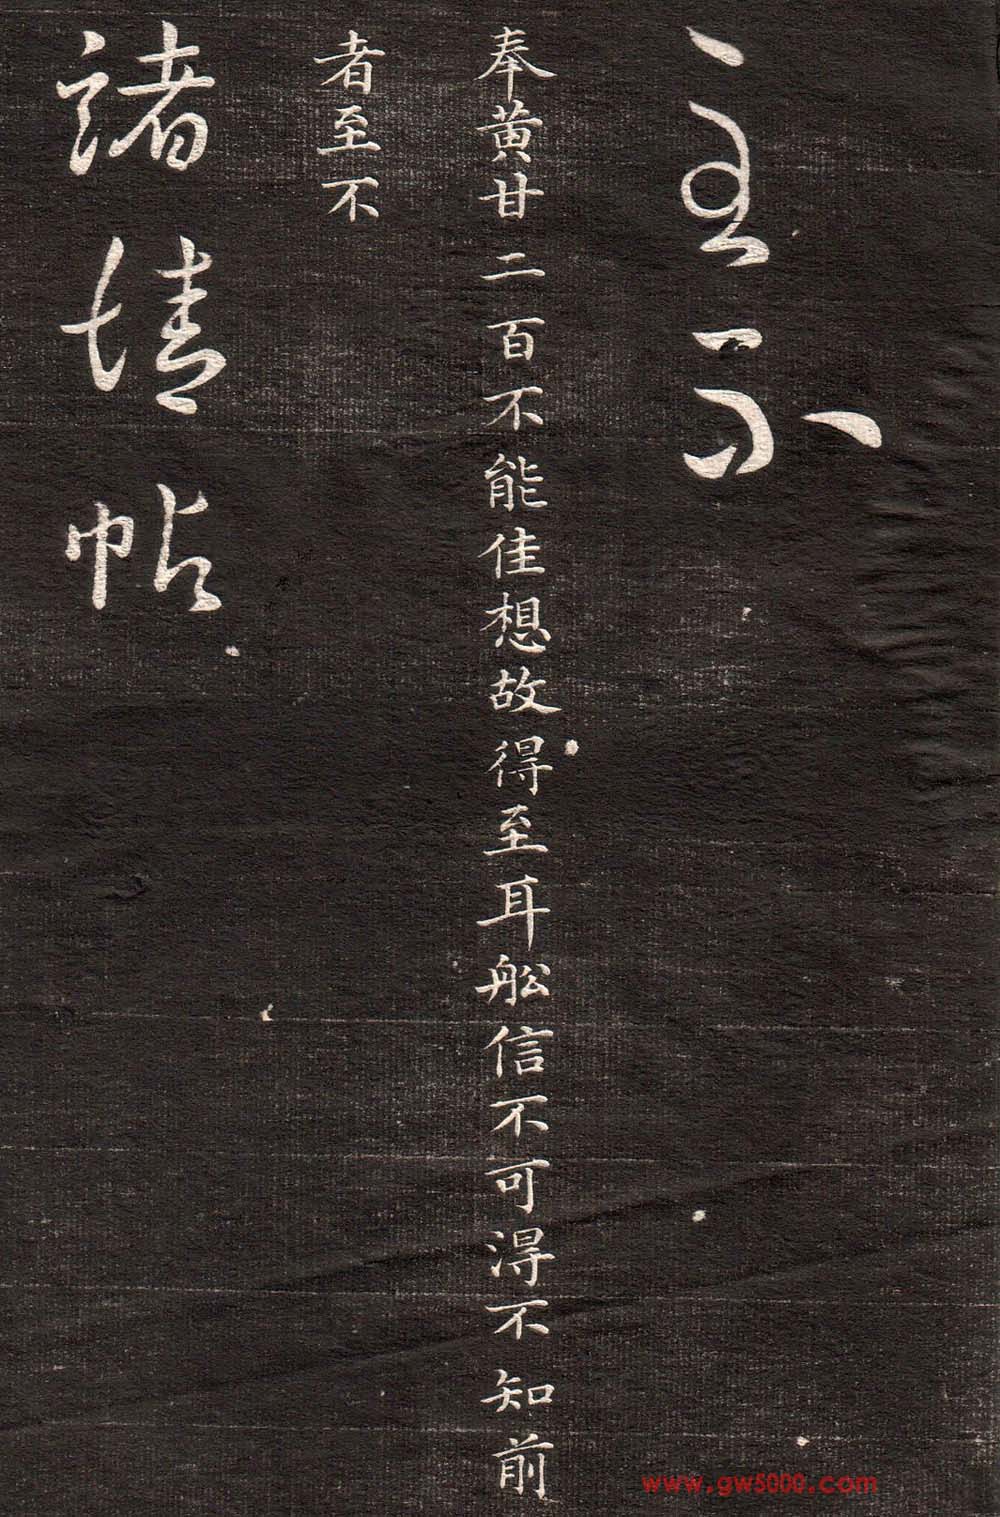 至不
奉黄甘二百不能佳想故得至耳舩信不可得不知前
者至不
諸情帖
www.gw5000.com